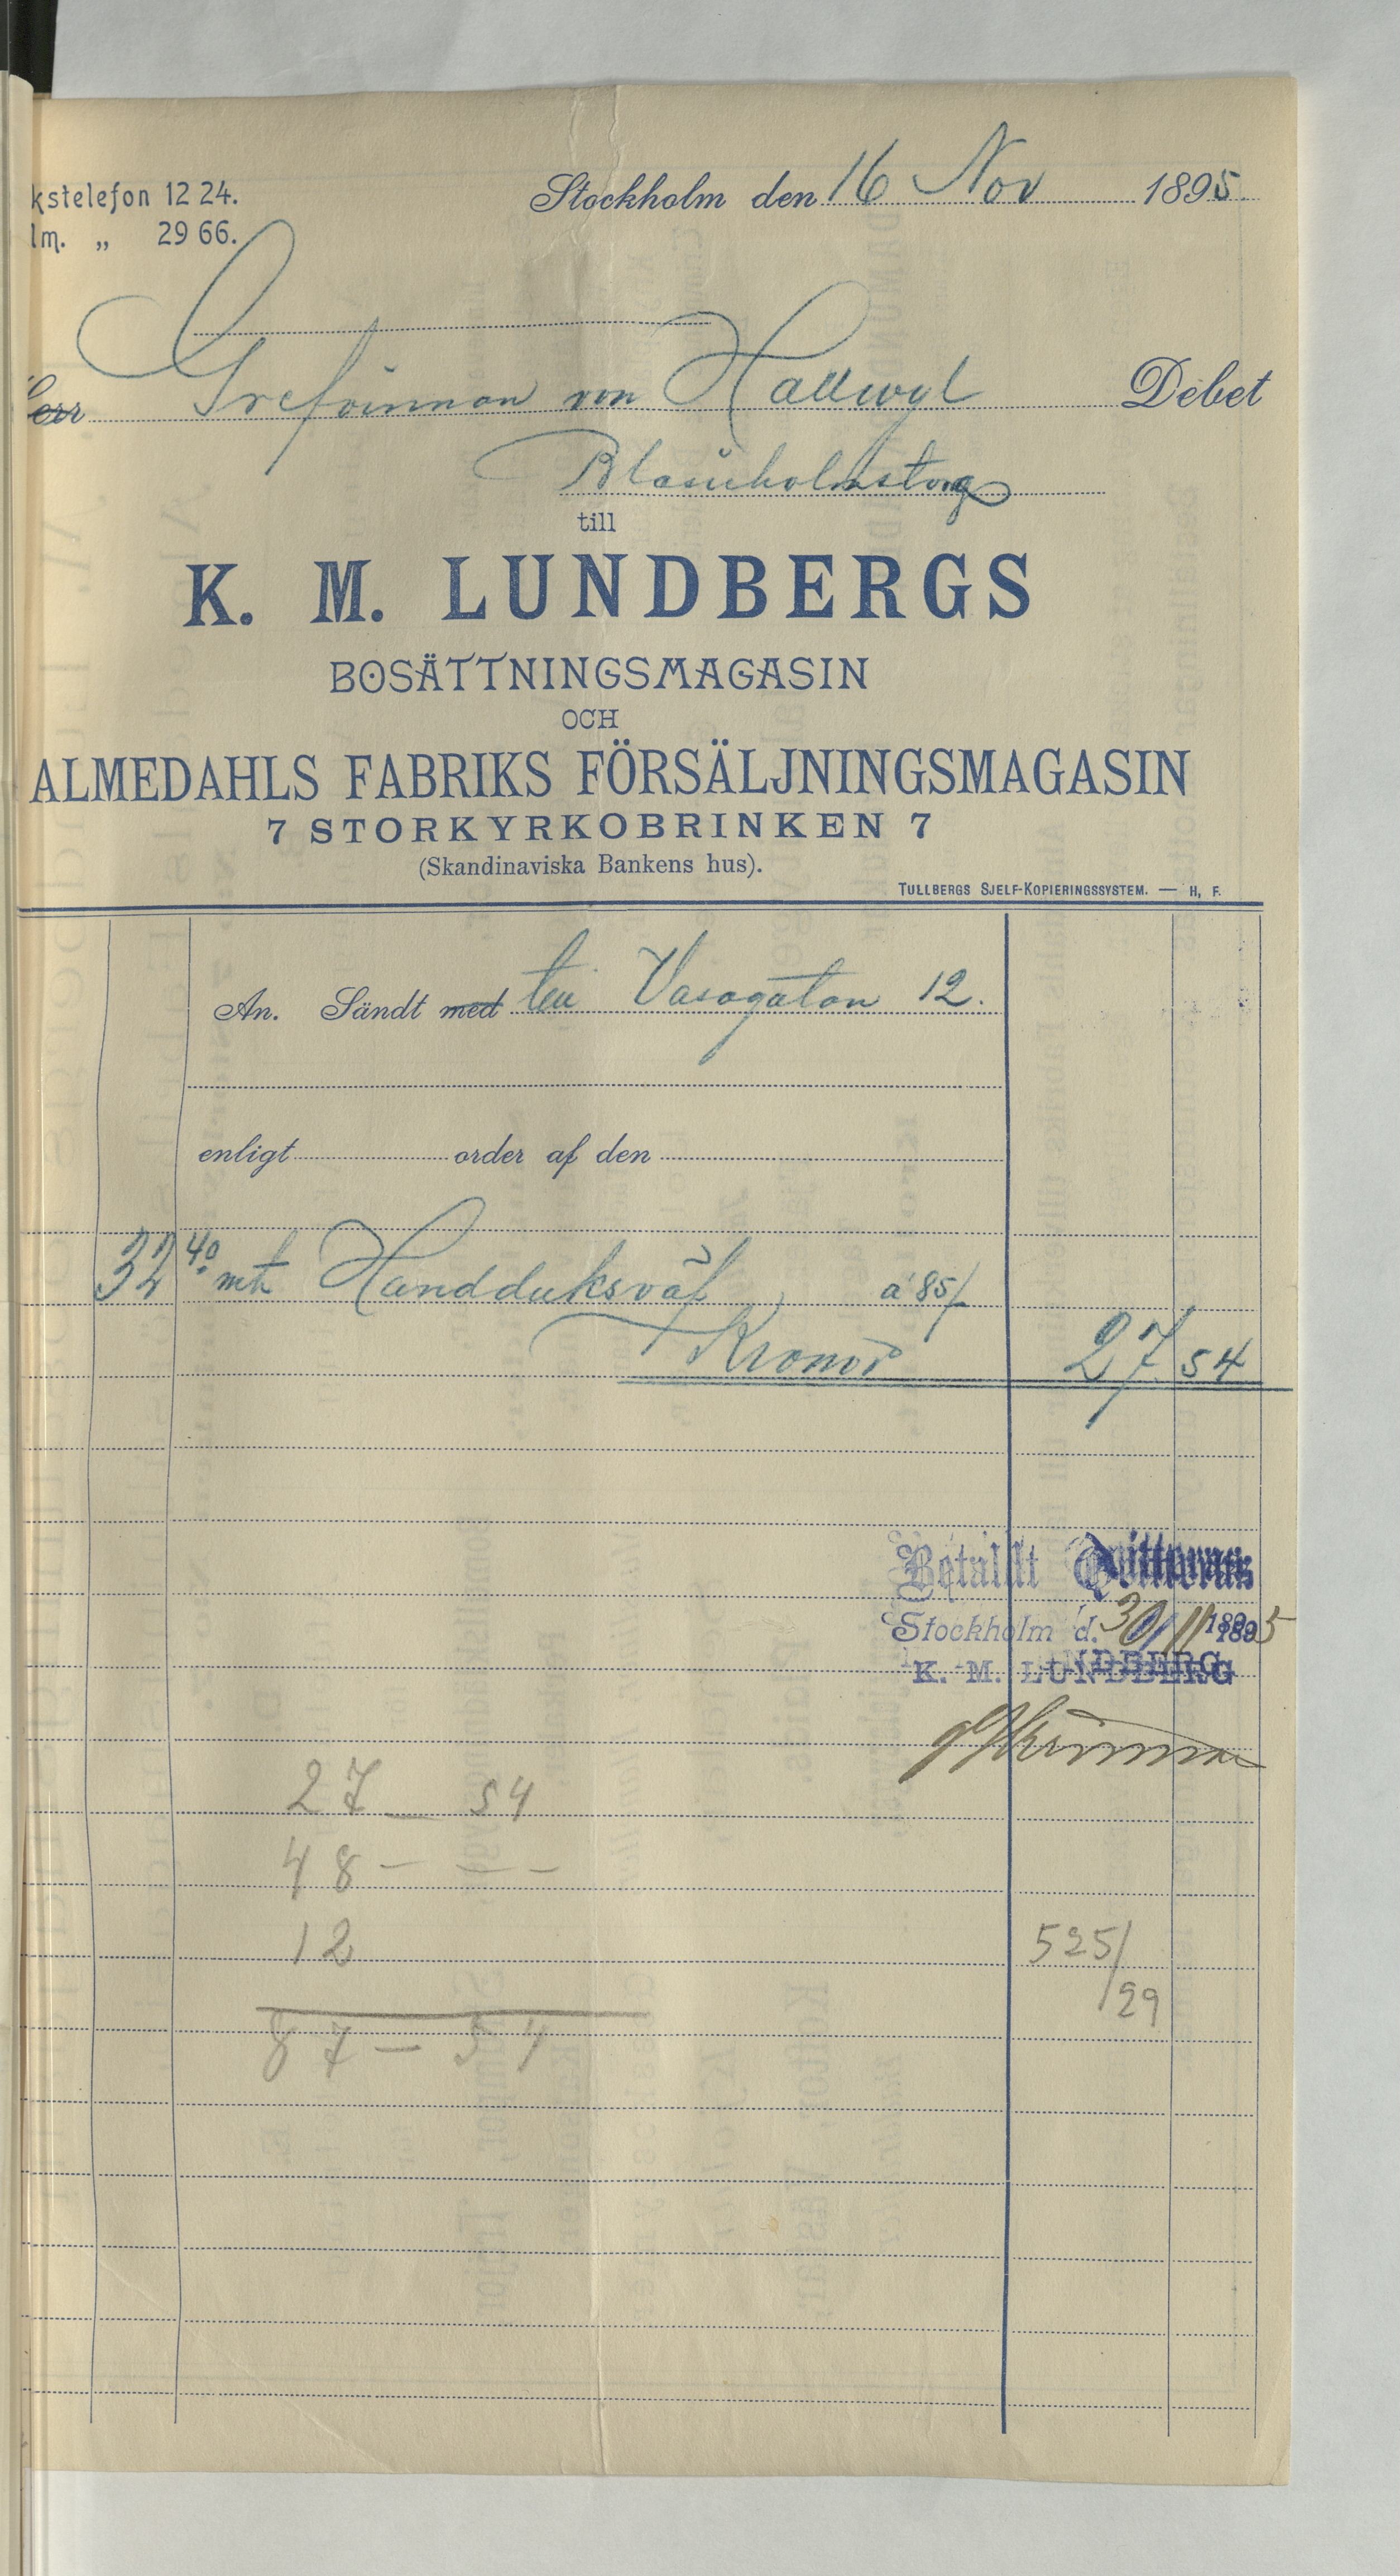 kstelefon 12 24.
lm. „ 29 66.
Stockholm den 16 Nov 1895.
Herr Grefvinnan von Hallwyl Debet
Blasieholmstorg
till
K. M. LUNDBERGS
BOSÄTTNINGSMAGASIN
OCH
ALMEDAHLS FABRIKS FÖRSÄLJNINGSMAGASIN
7 STORKYRKOBRINKEN 7
(Skandinaviska Bankens hus).
TULLBERGS SJELF-KOPIERINGSSYSTEM. — H, F.
An. Sändt med till Vasagatan 12.
enligt order af den
32 40 mtr Handduksväf à 85/-
Kronor 27 54
Betaldt Qvitteras
Stockholm d. 30/11 1895
K. M. LUNDBERG
27 — 54
48 — — —
12
525/
/29
87 — 54